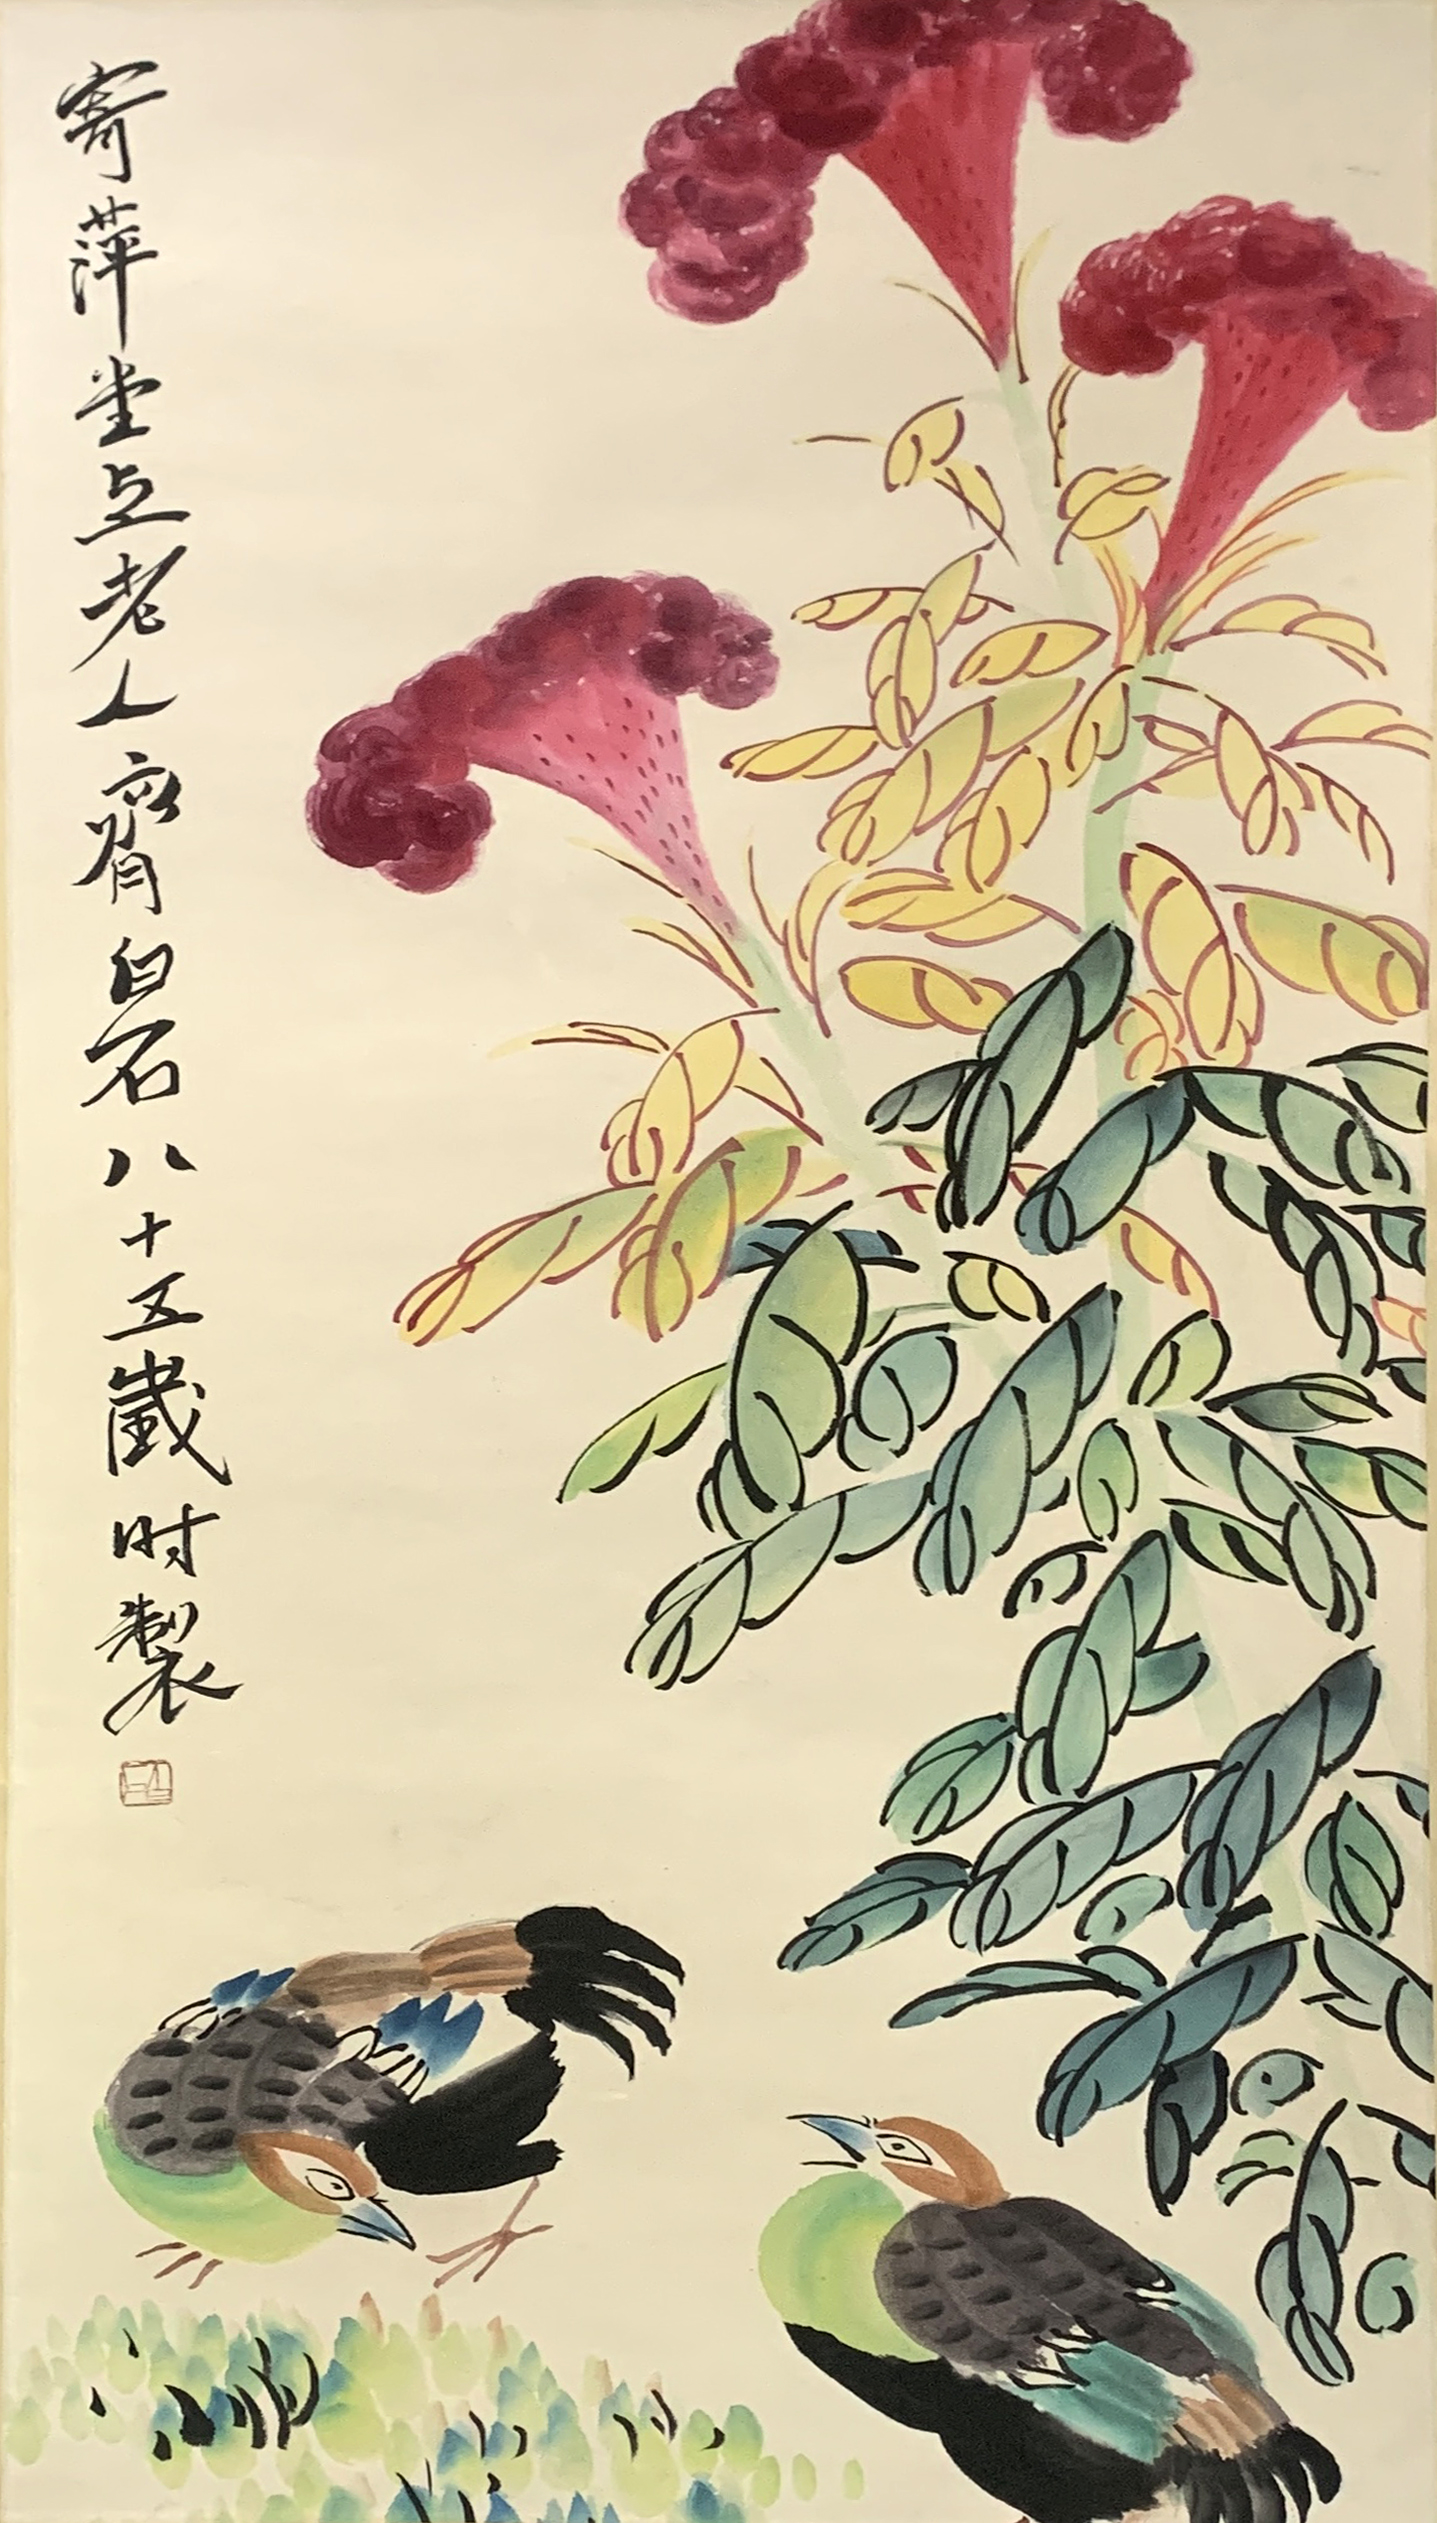 寄萍堂上老人齊白石八十五歲時製